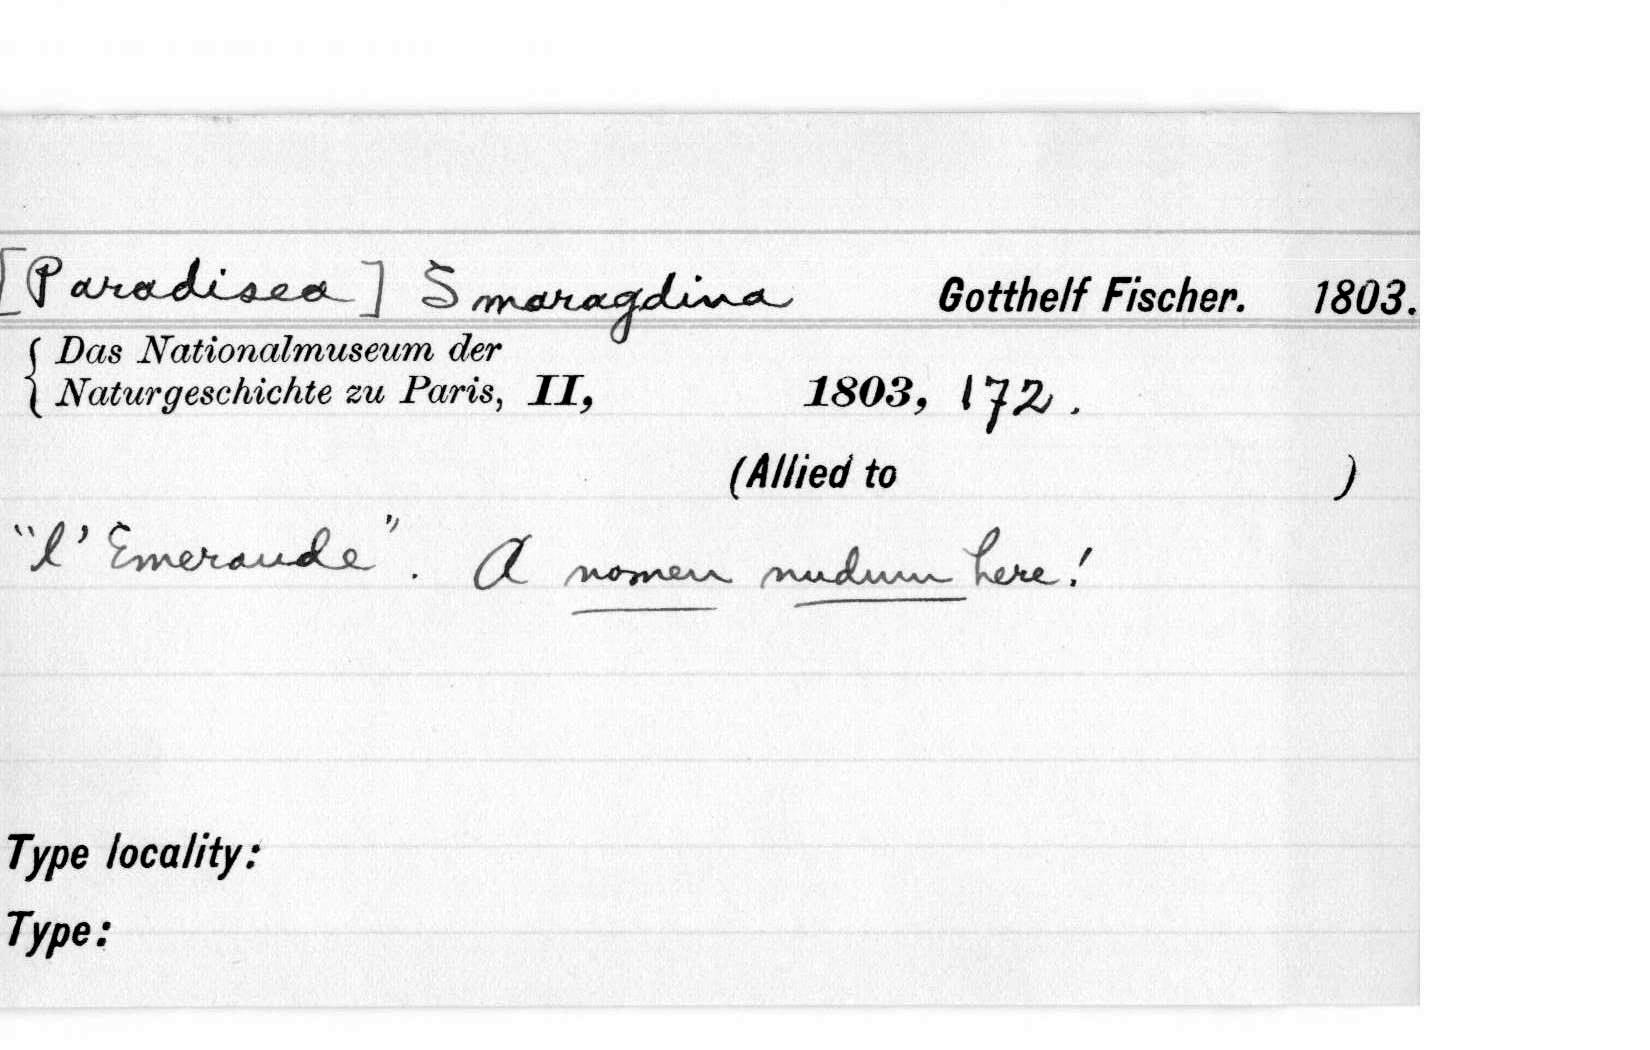 [Paradisea] Smaragdina Gotthelf Fischer. 1803.
Das Nationalmuseum der
Naturgeschichte zu Paris, II, 1803, 172.
(Allied to )
"l'Emeraude". A nomen nudum here!
Type locality:
Type: